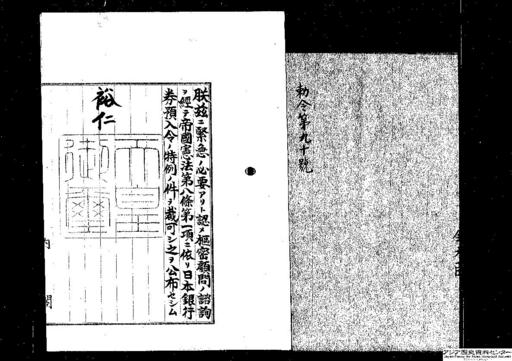 勅令第九十號
朕玆ニ緊急ノ必要アリト認メ樞密顧問ノ諮詢
ヲ經テ帝國憲法第八條第一項ニ依リ日本銀行
券預入令ノ特例ノ件ヲ裁可シ之ヲ公布セシム
裕仁
天皇
御璽
内閣
アジア歴史資料センター